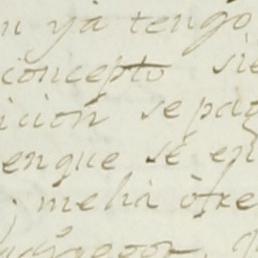 ya tengo
concepto sie
icion se pag
engue se en
; me ha ofre